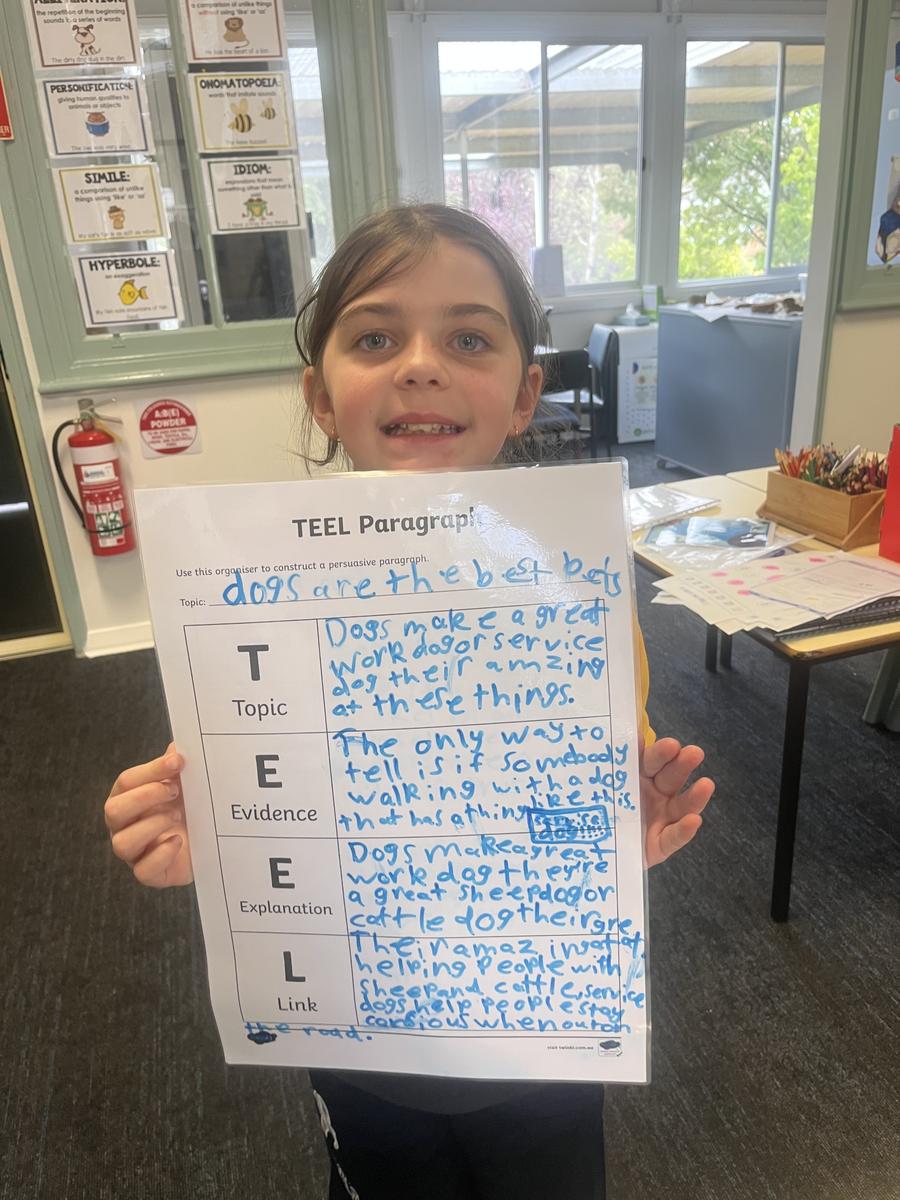 the repetition of the beginning
sounds in a series of words
The dirty dog dug in the dirt.
a comparison of unlike things
without using 'like' or 'as'
He has the heart of a lion.
PERSONIFICATION:
giving human qualities to
animals or objects
ONOMATOPOEIA:
words that imitate sounds
The bees buzzed.
SIMILE:
a comparison of unlike
things using 'like' or 'as'
IDIOM:
expressions that mean
something other than what is
HYPERBOLE:
an exaggeration
A:B(E)
POWDER
TEEL Paragraph
Use this organiser to construct a persuasive paragraph.
Topic: dogs are the best pets
T
Topic
Dogs make a great
work dog or service
dog their amzing
at these things.
E
Evidence
The only way to
tell is if somebody
walking with a dog
that has a thing like this.
E
Explanation
Dogs make a great
work dog they're
a great sheepdog or
cattle dog their gre
L
Link
Their amazing at
helping people with
sheep and cattle, service
dogs help people stay
when out on
the road.
visit twinkl.com.au